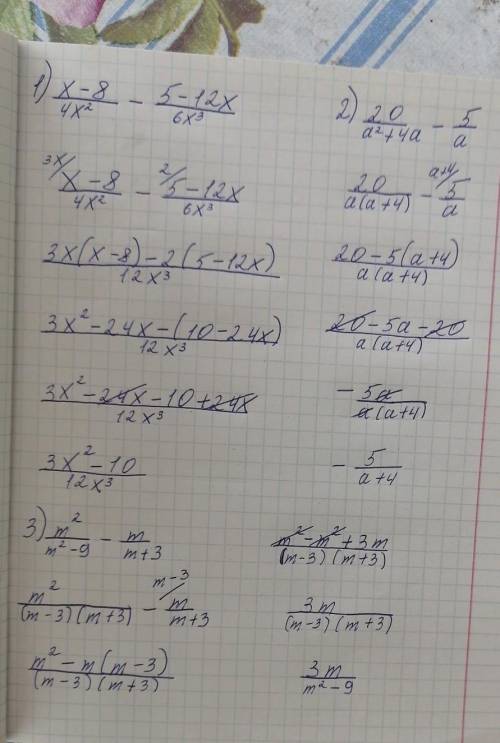 1) (x-8)/(4x²) - (5-12x)/(6x³)
3x/ (x-8)/(4x²) - 2/ (5-12x)/(6x³)
(3x(x-8)-2(5-12x))/(12x³)
(3x²-24x-(10-24x))/(12x³)
(3x²-24x-10+24x)/(12x³)
(3x²-10)/(12x³)
2) 20/(a²+4a) - 5/a
20/(a(a+4)) - a+4/ 5/a
(20-5(a+4))/(a(a+4))
(20-5a-20)/(a(a+4))
- 5a/(a(a+4))
- 5/(a+4)
3) m²/(m²-9) - m/(m+3)
m²/((m-3)(m+3)) - m-3/ m/(m+3)
(m²-m(m-3))/((m-3)(m+3))
(m²-m²+3m)/((m-3)(m+3))
3m/((m-3)(m+3))
3m/(m²-9)